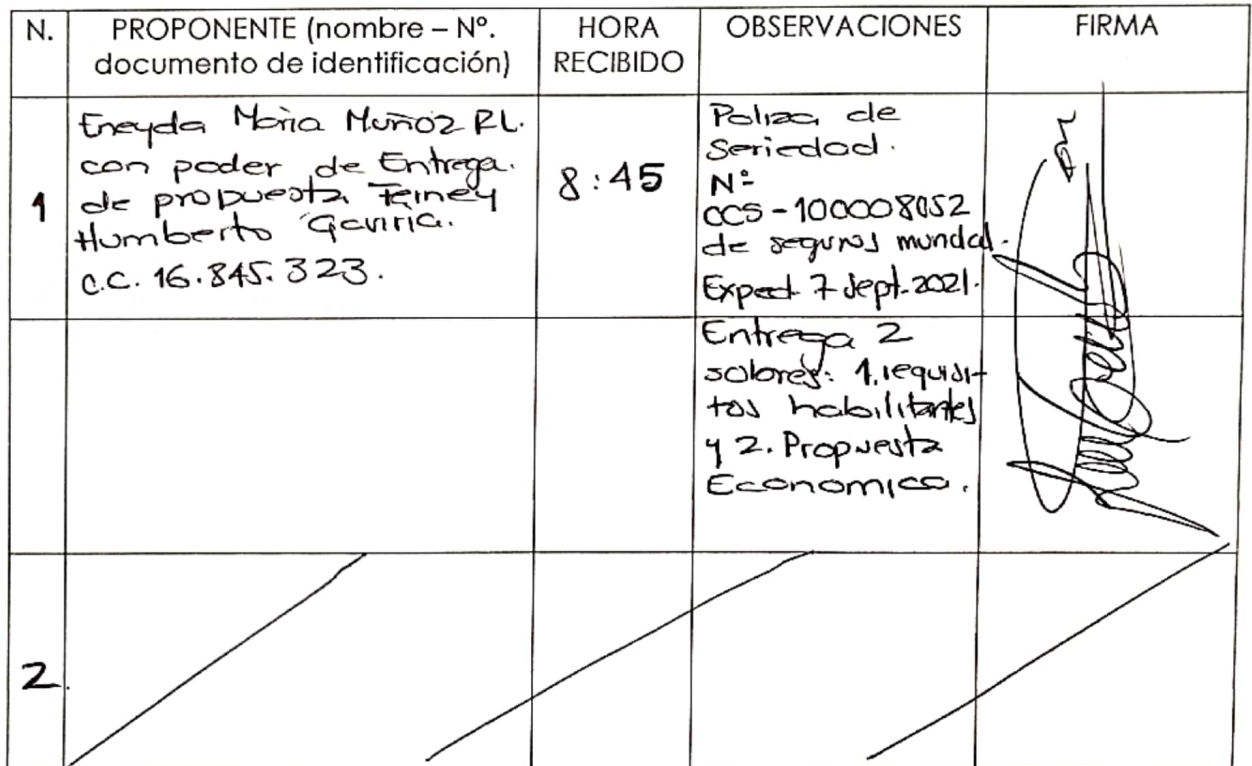 N.
PROPONENTE (nombre – Nº.
documento de identificación)
HORA
RECIBIDO
OBSERVACIONES
FIRMA
1
Eneyda Maria Muñoz RL.
con poder de Entrega.
de propuesta Ferney
Humberto Gaviria.
C.C. 16.845.323.
8:45
Poliza de
Seriedad.
Nº
CCS-100008052
de seguros mundial.
Exped. 7 Sept. 2021.
Entrega 2
sobres: 1. requisi-
tos habilitantes
y 2. Propuesta
Economica.
2.